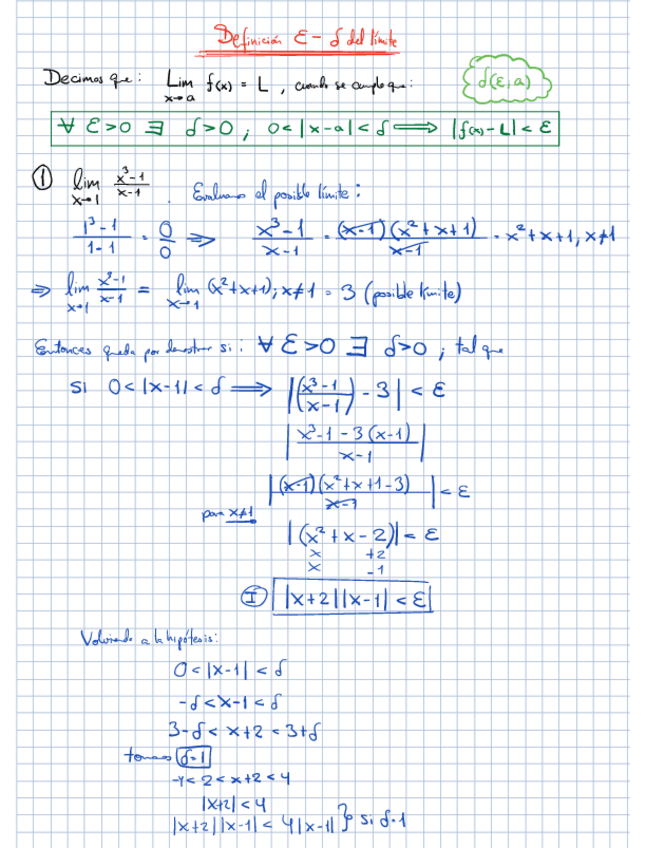 Definición ε-δ del límite
Decimos que: Lim x→a f(x) = L, cuando se cumple que: δ(ε,a)
∀ ε>0 ∃ δ>0; 0<|x-a|<δ ⟹ |f(x)-L|<ε
① lim x→1 x³-1/x-1. Evaluamos el posible límite:
1³-1/1-1 = 0/0 ⇒ x³-1/x-1 = (x-1)(x²+x+1)/x-1 = x²+x+1, x≠1
⇒ lim x→1 x³-1/x-1 = lim x→1 (x²+x+1); x≠1 = 3 (posible límite)
Entonces queda por demostrar si: ∀ ε>0 ∃ δ>0; tal que
Si 0<|x-1|<δ ⟹ |(x³-1/x-1) - 3| < ε
|x³-1-3(x-1)/x-1|
|(x-1)(x²+x+1-3)/x-1| < ε
para x≠1
|(x²+x-2)| < ε
x +2
x -1
Ⓘ |x+2||x-1| < ε
Volviendo a la hipótesis:
0<|x-1|<δ
-δ<x-1<δ
3-δ<x+2<3+δ
tomamos δ=1
-4<2<x+2<4
|x+2|<4
|x+2||x-1| < 4|x-1| } si δ=1